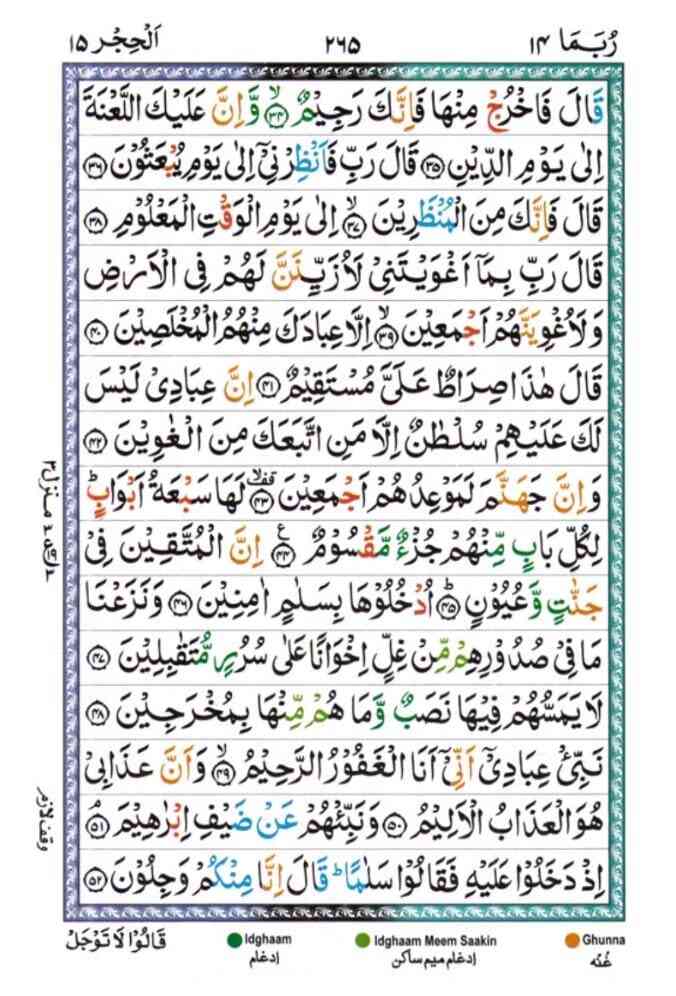 رُبَمَا ١٤
٢٦٥
اَلْحِجْر ١٥
قَالَ فَاخْرُجْ مِنْهَا فَاِنَّكَ رَجِيْمٌ ۙ﴿۳۴﴾ وَّاِنَّ عَلَيْكَ اللَّعْنَةَ
اِلٰى يَوْمِ الدِّيْنِ ﴿۳۵﴾ قَالَ رَبِّ فَاَنْظِرْنِيْٓ اِلٰى يَوْمِ يُبْعَثُوْنَ ﴿۳۶﴾
قَالَ فَاِنَّكَ مِنَ الْمُنْظَرِيْنَ ۙ﴿۳۷﴾ اِلٰى يَوْمِ الْوَقْتِ الْمَعْلُوْمِ ﴿۳۸﴾
قَالَ رَبِّ بِمَآ اَغْوَيْتَنِيْ لَاُزَيِّنَنَّ لَهُمْ فِى الْاَرْضِ
وَلَاُغْوِيَنَّهُمْ اَجْمَعِيْنَ ۙ﴿۳۹﴾ اِلَّا عِبَادَكَ مِنْهُمُ الْمُخْلَصِيْنَ ﴿۴۰﴾
قَالَ هٰذَا صِرَاطٌ عَلَيَّ مُسْتَقِيْمٌ ﴿۴۱﴾ اِنَّ عِبَادِيْ لَيْسَ
لَكَ عَلَيْهِمْ سُلْطٰنٌ اِلَّا مَنِ اتَّبَعَكَ مِنَ الْغٰوِيْنَ ﴿۴۲﴾
وَاِنَّ جَهَنَّمَ لَمَوْعِدُهُمْ اَجْمَعِيْنَ ﴿۴۳﴾ لَهَا سَبْعَةُ اَبْوَابٍ ؕ
لِكُلِّ بَابٍ مِّنْهُمْ جُزْءٌ مَّقْسُوْمٌ ﴿۴۴﴾ اِنَّ الْمُتَّقِيْنَ فِيْ
جَنّٰتٍ وَّعُيُوْنٍ ؕ﴿۴۵﴾ اُدْخُلُوْهَا بِسَلٰمٍ اٰمِنِيْنَ ﴿۴۶﴾ وَنَزَعْنَا
مَا فِيْ صُدُوْرِهِمْ مِّنْ غِلٍّ اِخْوَانًا عَلٰى سُرُرٍ مُّتَقٰبِلِيْنَ ﴿۴۷﴾
لَا يَمَسُّهُمْ فِيْهَا نَصَبٌ وَّمَا هُمْ مِّنْهَا بِمُخْرَجِيْنَ ﴿۴۸﴾
نَبِّئْ عِبَادِيْٓ اَنِّيْٓ اَنَا الْغَفُوْرُ الرَّحِيْمُ ۙ﴿۴۹﴾ وَاَنَّ عَذَابِيْ
هُوَ الْعَذَابُ الْاَلِيْمُ ﴿۵۰﴾ وَنَبِّئْهُمْ عَنْ ضَيْفِ اِبْرٰهِيْمَ ۘ﴿۵۱﴾
اِذْ دَخَلُوْا عَلَيْهِ فَقَالُوْا سَلٰمًا ؕ قَالَ اِنَّا مِنْكُمْ وَجِلُوْنَ ﴿۵۲﴾
منزل ۳
وقف لازم
قَالُوْا لَا تَوْجَلْ
Idghaam
ادغام
Idghaam Meem Saakin
ادغام میم ساکن
Ghunna
غنّه